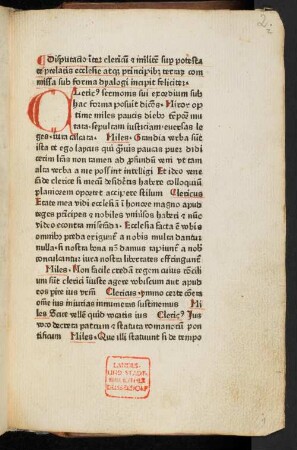 2
Disputacio inter clericū et militē sup potesta
te prelatis ecclesie atqꝫ principibꝫ terraꝝ com
missa sub forma dyalogi incipit feliciter·
Clericꝰ sermonis sui exordium sub
hac forma posuit dicēs. Miror op
time miles paucis diebꝰ tempora mu
tata·sepultam iusticiam·euersas le
ges·iura calcata· Miles· Grandia verba sūt
ista et ego laycus qui ꝗuis paucis puer didi
cerim lrās non tamen ad ꝓfundū veni vt tam
alta verba a me possint intelligi Et ideo vene
rāde clerice si mecū desideras habere colloquiū
planiorem oportet accipere stilum Clericus
Etate mea vidi ecclesiā ī honore magno apud
reges prīcipes et nobiles vniuersos haberi et nūc
video econtra miserādā· Ecclesia facta est vobis
omnibꝰ preda exigunt̄ a nobis multa dantur
nulla·si nostra non damus rapiunt̄ a nobis
conculcant̄ iura nostra libertates effringunt̄
Miles· Non facile credā regem cuius cōcili
um sūt clerici iniuste agere vobiscum aut apud
eos pire ius vestrū Clericus·ymmo certe cōtra
omne ius iniurias innumeras sustinemus Mi
les Scire vellē quid vocatis ius Clericꝰ Ius
voco decreta patrum et statuta romanorū pon
tificum Miles·Que illi statuunt si de tempo
LANDES-
UND STADT-
BIBLIOTHEK
DÜSSELDORF